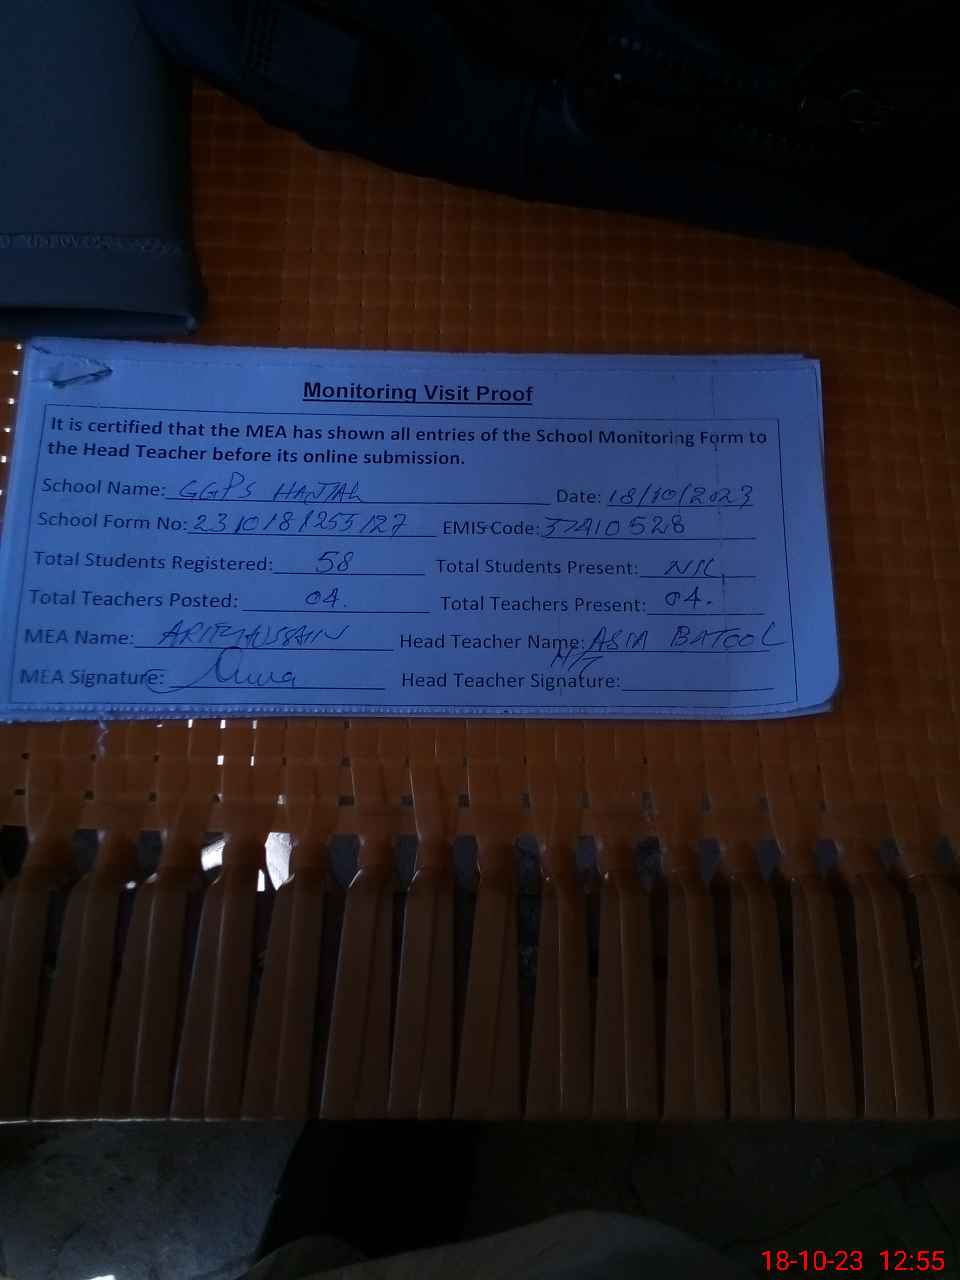 Monitoring Visit Proof
It is certified that the MEA has shown all entries of the School Monitoring Form to
the Head Teacher before its online submission.
School Name: GGPS HANJAL Date: 18/10/2023
School Form No: EMIS Code: 37410528
Total Students Registered: 58 Total Students Present: NIL
Total Teachers Posted: 04. Total Teachers Present: 04.
MEA Name: ARIF HUSSAIN Head Teacher Name: ASIA BATOOL
MEA Signature: Head Teacher Signature:
18-10-23 12:55